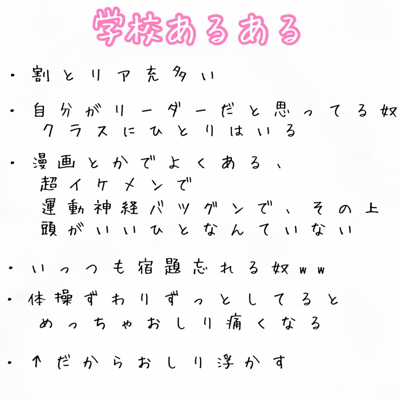 学校あるある
・割とリア充多い
・自分がリーダーだと思ってる奴
クラスにひとりはいる
・漫画とかでよくある、
超イケメンで
運動神経バツグンで、その上
頭がいいひとなんていない
・いっつも宿題忘れる奴ww
・体操ずわりずっとしてると
めっちゃおしり痛くなる
・↑だからおしり浮かす